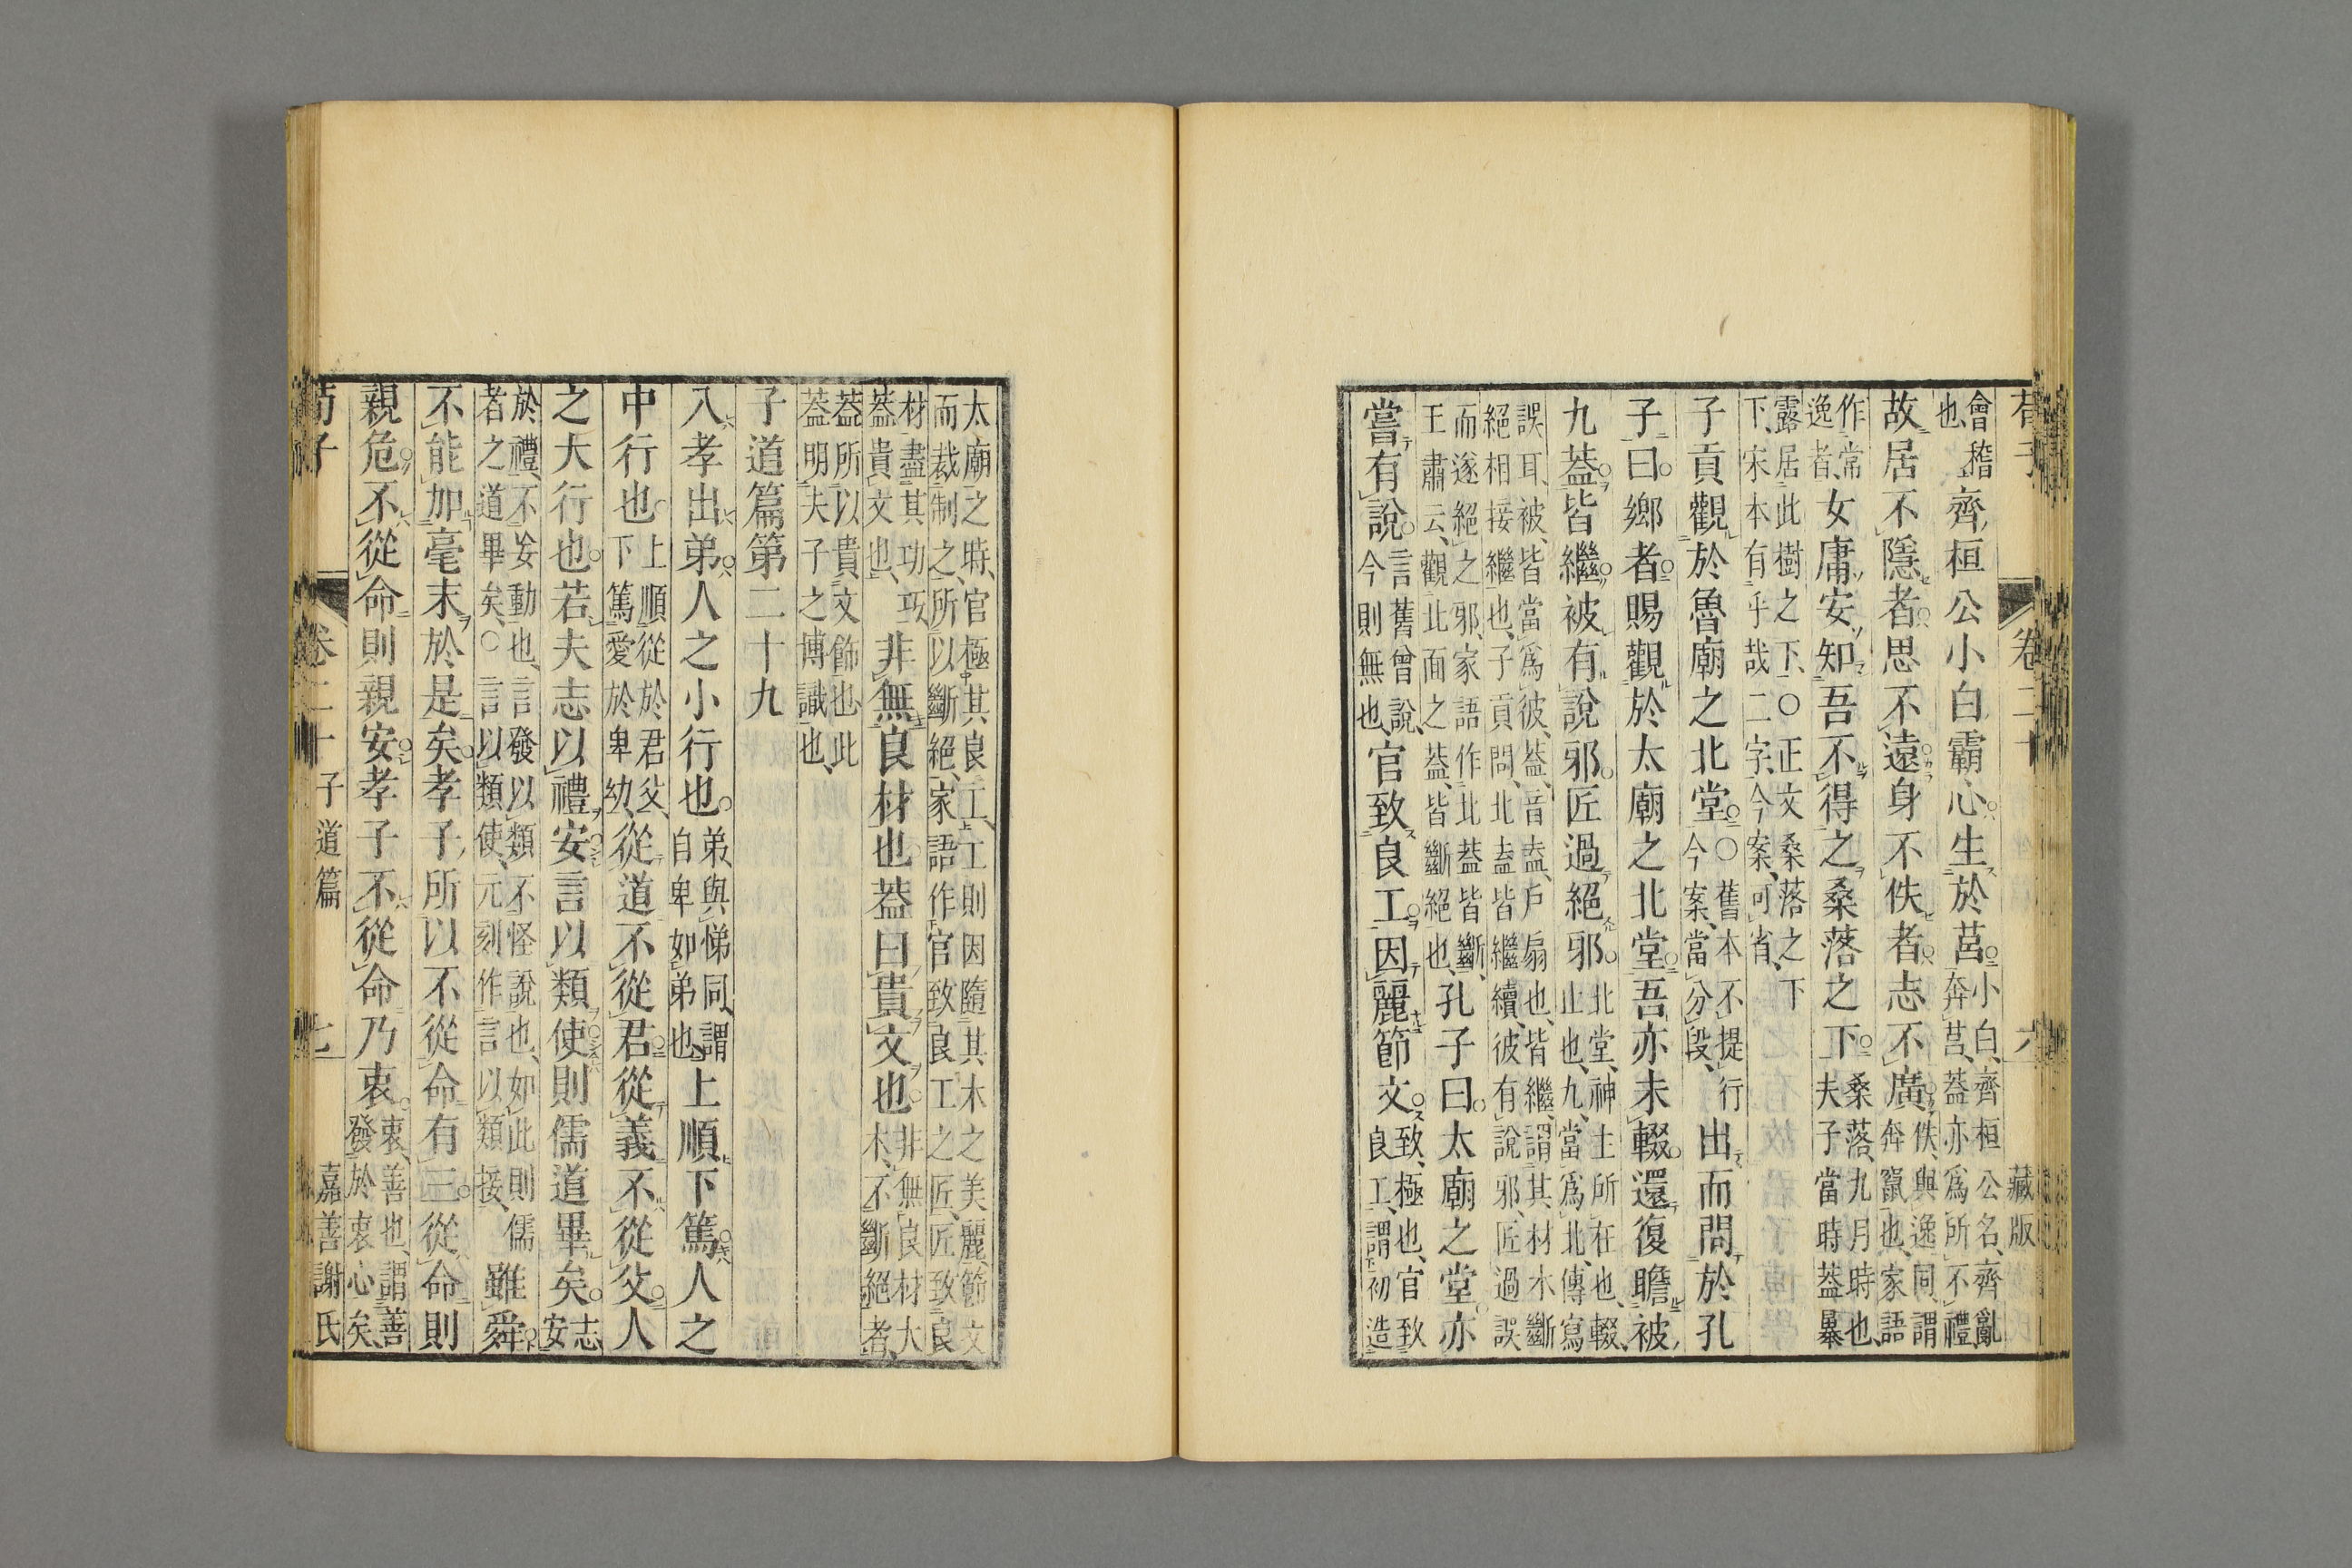 荀子 卷二十 六 藏版
會稽
也 齊桓公小白霸心生於莒 小白、齊桓公名、齊亂
奔莒、葢亦爲所不禮、
故居不隱者思不遠身不佚者志不廣 佚、與逸同、謂
奔竄也、家語
作常
逸者、 女庸安知吾不得之桑落之下 桑落、九月時也、
夫子當時葢暴
露居此樹之下、○正文桑落之下
下、宋本有乎哉二字、今案、可省、
子貢觀於魯廟之北堂 ○舊本不提行
今案、當分段、 出而問於孔
子曰鄉者賜觀於太廟之北堂吾亦未輟還復瞻被
九葢皆繼被有說邪匠過絕邪 北堂、神主所在也、輟、
止也、九、當爲北、傳寫
誤耳、被、皆當爲彼、葢、音盍、戶扇也、皆繼、謂其材木斷
絕相接繼也、子貢問、北盍皆繼續、彼有說邪、匠過誤
而遂絕之邪、家語作北葢皆斷、
王肅云、觀北面之葢、皆斷絕也、 孔子曰太廟之堂亦
嘗有說 言舊曾說、
今則無也、 官致良工因麗節文 致、極也、官致
良工、謂初造
太廟之時、官極其良工、工則因隨其木之美麗節文
而裁制之、所以斷絕、家語作官致良工之匠、匠致良
材、盡其功巧、
葢貴文也、 非無良材也葢曰貴文也 非無良材大
木、不斷絕者、
葢所以貴文飾也此
葢明夫子之博識也、
子道篇第二十九
入孝出弟人之小行也 弟、與悌同、謂
自卑如弟也、 上順下篤人之
中行也 上順從於君父、
下篤愛於卑幼、 從道不從君從義不從父人
之大行也若夫志以禮安言以類使則儒道畢矣 志
安
於禮、不妄動也、言發以類、不怪說也、如此則儒
者之道畢矣、○言以類使、元刻作言以類接、 雖舜
不能加毫末於是矣孝子所以不從命有三從命則
親危不從命則親安孝子不從命乃衷 衷、善也、謂善
發於衷心矣、
荀子 卷二十 子道篇 七 嘉善謝氏